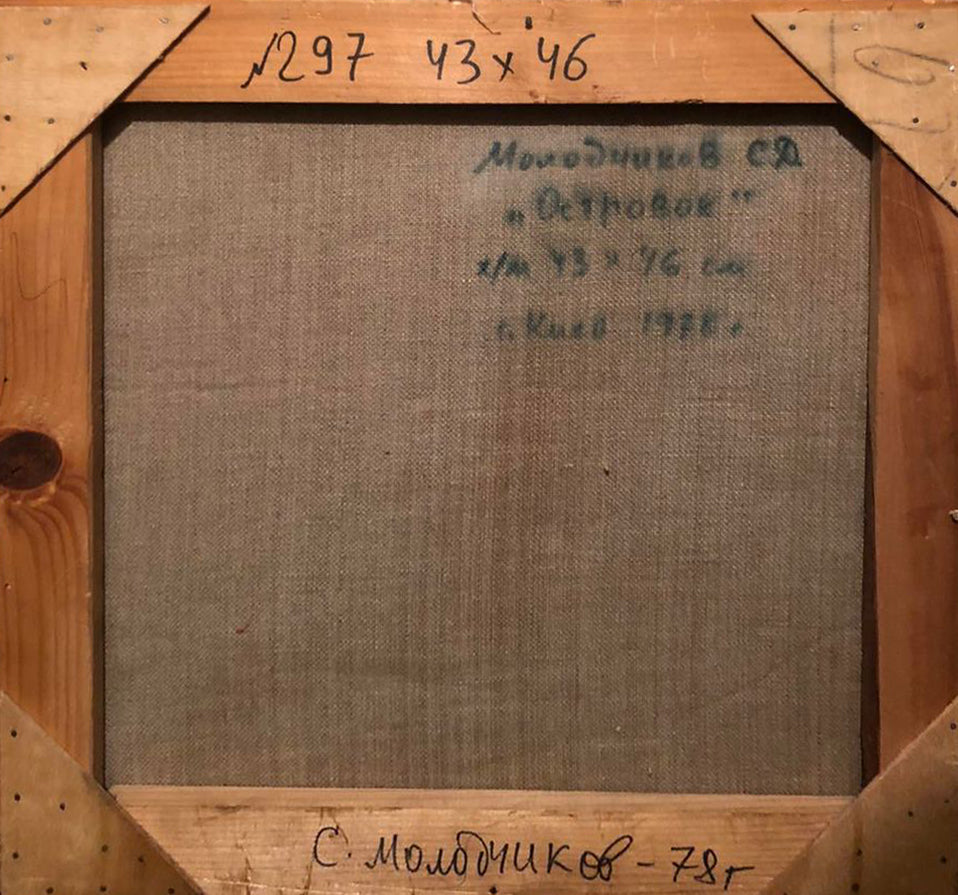 №297 43×46
Молодчиков СД
„Островок"
х/м 43×46 см
г. Киев 1978г
С. Молодчиков - 78г